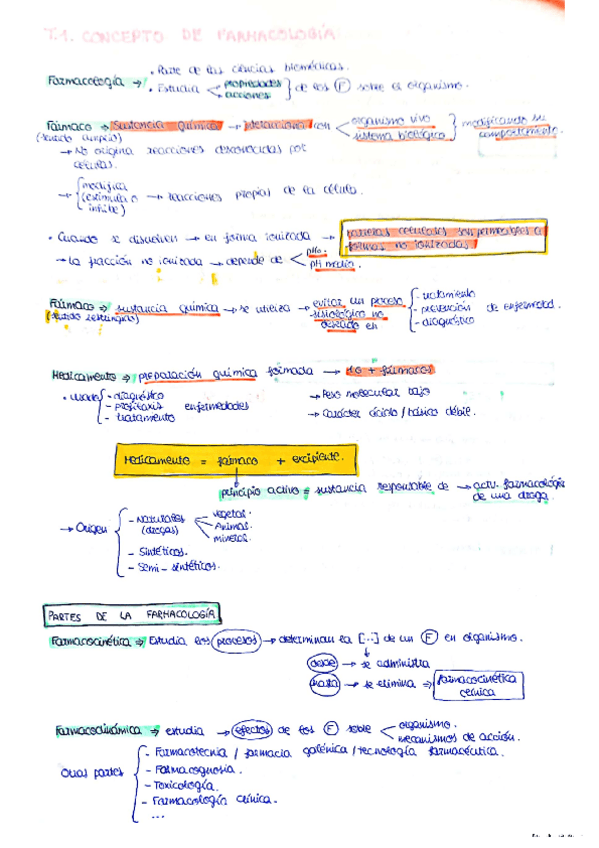 T.1. CONCEPTO DE FARMACOLOGÍA
Farmacología → • Parte de las ciencias biomédicas.
• Estudia < propiedades acciones } de los Ⓕ sobre el organismo.
Fármaco → sustancia química → interacciona con < organismo vivo sistema biológico } modificando su comportamiento.
(sentido amplio)
→ No origina reacciones desconocidas por células.
→ { modifica (estimula o inhibe) → reacciones propias de la célula.
• Cuando se disuelven → en forma ionizada → barreras celulosas son permeables a formas no ionizadas
→ la fracción no ionizada → depende de < pKa. pH medio.
Fármaco → sustancia química → se utiliza → evitar un proceso fisiológico no deseado en { - tratamiento - prevención - diagnóstico de enfermedad.
(sentido restringido)
Medicamento → preparación química formada → 1 ó + fármacos
• Usado { - diagnóstico - profilaxis - tratamiento enfermedades
→ Peso molecular bajo
→ Carácter ácido / básico débil.
Medicamento = fármaco + excipiente.
principio activo = sustancia responsable de → activ. farmacológica de una droga.
→ Origen { - Naturales (drogas) - vegetal. - Animal. - mineral.
- Sintéticos.
- Semi-sintéticos.
PARTES DE LA FARMACOLOGÍA
Farmacocinética → Estudia los procesos → determinan la [..] de un Ⓕ en organismo.
desde → se administra
hasta → se elimina ⇒ farmacocinética clínica
Farmacodinámica → estudia → efectos de los Ⓕ sobre < organismo. mecanismos de acción.
Otras partes { - Farmacotecnia / farmacia galénica / tecnología farmacéutica.
- Farmacognosia.
- Toxicología.
- Farmacología clínica.
...